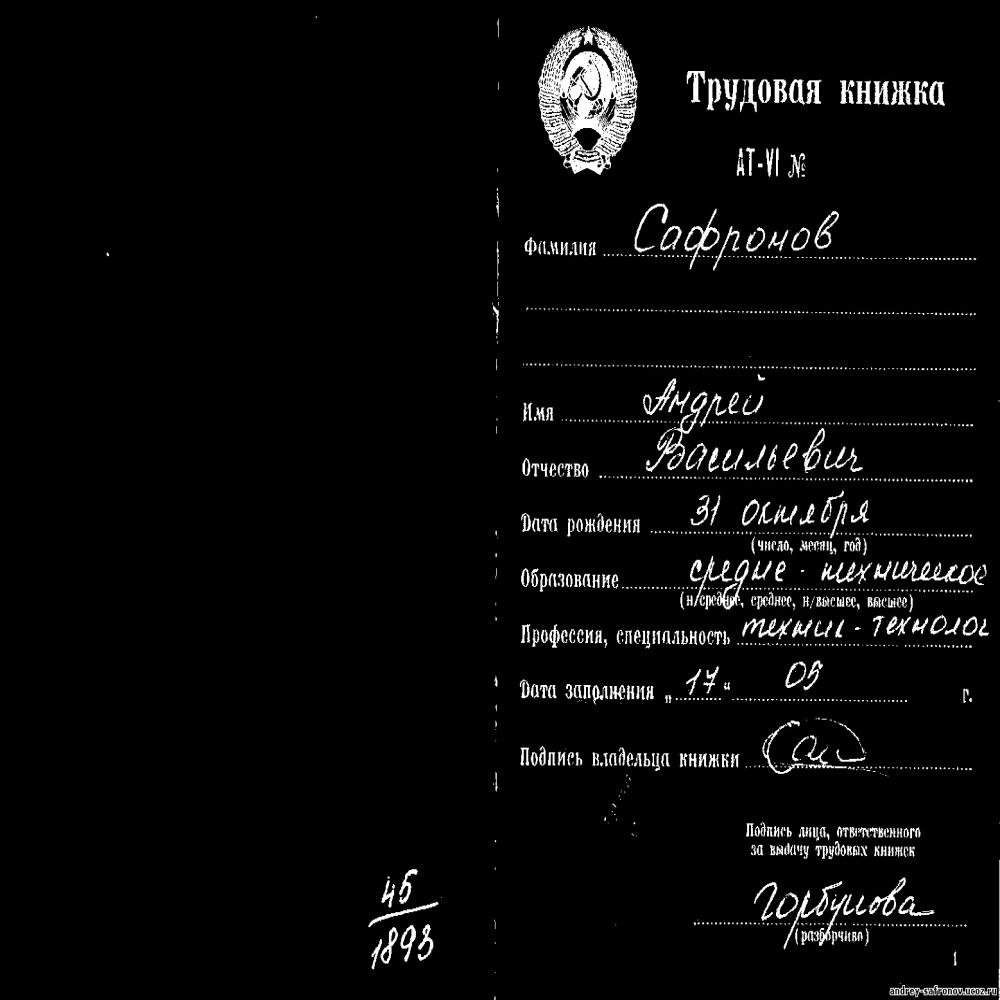 Трудовая книжка
АТ-VI №
Фамилия Сафронов
Имя Андрей
Отчество Васильевич
Дата рождения 31 октября
(число, месяц, год)
Образование средне-техническое
(н/среднее, среднее, н/высшее, высшее)
Профессия, специальность техник-технолог
Дата заполнения „17“ 05 г.
Подпись владельца книжки Саф
Подпись лица, ответственного
за выдачу трудовых книжек
Горбунова
(разборчиво)
45
1893
1
andrey-safronov.ucoz.ru